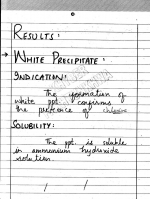 RESULTS:
→ WHITE PRECIPITATE:
INDICATION:
The formation of
white ppt. confirms
the presence of chlorine
SOLUBILITY:
The ppt. is soluble
in ammonium hydroxide
solution.